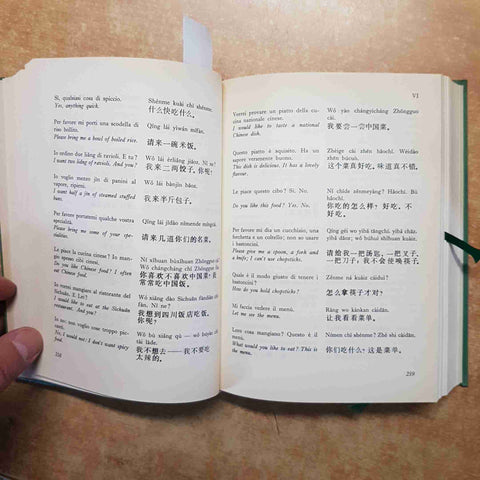 Sì, qualsiasi cosa di spiccio.
Yes, anything quick.
Shénme kuài chī shénme.
什么快吃什么。
Per favore mi porti una scodella di
riso bollito.
Please bring me a bowl of boiled rice.
Qǐng lái yìwǎn mǐfàn.
请来一碗米饭。
In ordino due liǎng di ravioli. E tu?
I want two liǎng of ravioli. And you?
Wǒ lái èrliǎng jiǎozi. Nǐ ne?
我来二两饺子，你呢？
Io voglio mezzo jīn di panini al
vapore, ripieni.
I want half a jin of steamed stuffed
buns.
Wǒ lái bànjīn bāozi.
我来半斤包子。
Per favore portatemi qualche vostra
specialità.
Please bring me some of your spe-
cialities.
Qǐng lái jǐdào nǐmende míngcài.
请来几道你们的名菜。
Ti piace la cucina cinese? Io man-
gio spesso cibi cinesi.
Do you like Chinese food? I often
eat Chinese food.
Nǐ xǐhuan bùxǐhuan Zhōngguó
Wǒ chángcháng chī Zhōngguó
你喜欢不喜欢中国菜？我
常常吃中国饭。
mangiare al ristorante del
Sichuān. E Lei?
I would like to eat at the Sichuān
restaurant. And you?
Wǒ xiǎng dào Sìchuān fàndiàn
Nǐ ne?
我想到四川饭店吃饭。
你呢？
non voglio cose troppo pic-
canti.
No, I would not; I don't want spicy
food.
Wǒ bù xiǎng qù — wǒ búyào
tài làde.
我不想去——我不要吃
太辣的。
258
VI
Vorrei provare un piatto della cu-
cina nazionale cinese.
I would like to taste a national
Chinese dish.
Wǒ yào chángyìcháng Zhōngguó
cài.
我要尝一尝中国菜。
Questo piatto è squisito. Ha un
sapore veramente buono.
The dish is delicious. It has a lovely
flavour.
Zhèige cài zhēn hǎochī. Wèidào
zhēn búcuò.
这个菜真好吃。味道真不错。
Le piace questo cibo? Sì. No.
Do you like this food? Yes. No.
Nǐ chīde zěnmeyàng? Hǎochī. Bù
hǎochī.
你吃的怎么样？好吃。不
好吃。
Per favore mi dia un cucchiaio,
una forchetta e un coltello; non so usare
i bastoncini.
Please give me a spoon, a fork and
a knife; I can't use chopsticks.
请给我一把汤匙、一把叉子、
一把刀子；我不会使唤筷子。
Quale è il modo giusto di tenere
i bastoncini?
How do you hold chopsticks?
Zěnme ná kuàir cáiduì?
怎么拿筷子才对？
Mi faccia vedere il menù.
Let me see the menu.
Ràng wo kànkan càidān.
让我看看菜单。
Cosa mangiamo? Questo è il
menù.
What would you like to eat? This is
the menu.
Nǐmen chī shénme? Zhè shì càidān.
你们吃什么？这是菜单。
259